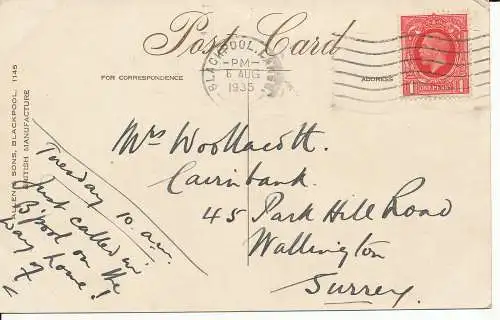 Post Card
FOR CORRESPONDENCE
ADDRESS
BLACKPOOL.
PM
6 AUG
1935
1 ONE PENNY 1
ALLEN & SONS, BLACKPOOL. 1145
BRITISH MANUFACTURE
Tuesday 10 a.m.
Just called in
B'pool on the
way home!
Mrs Woollacott
Cairnbank.
45 Park Hill Road
Wallington
Surrey.